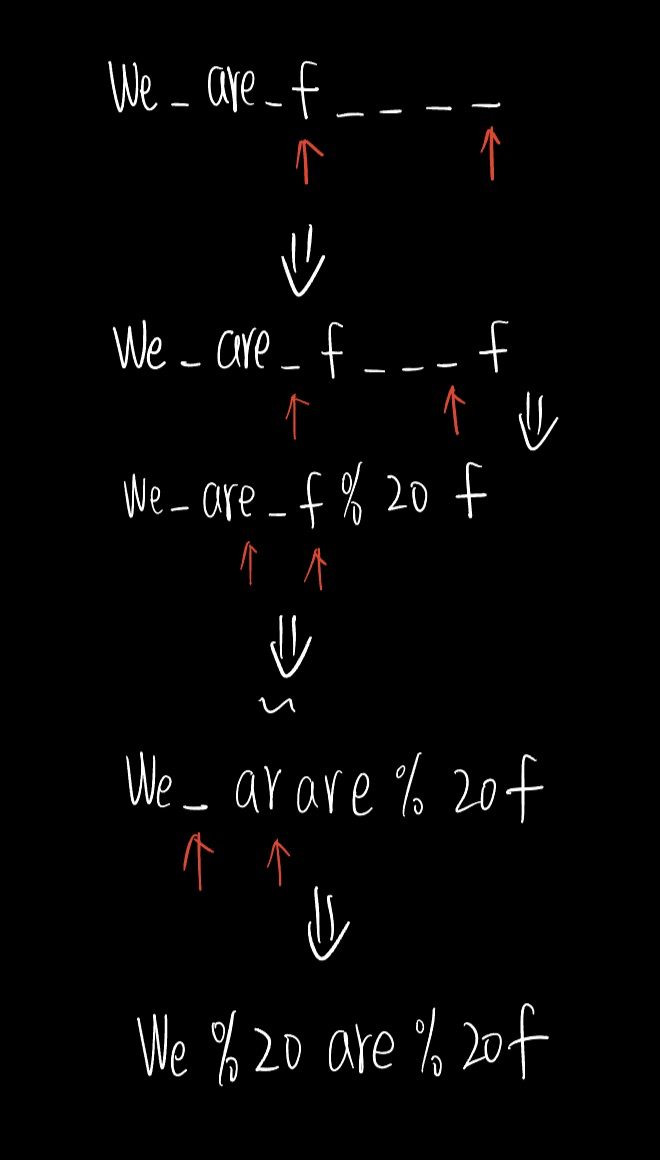 We_are_f____
We_are_f___f
We_are_f%20f
We_arare%20f
We%20are%20f